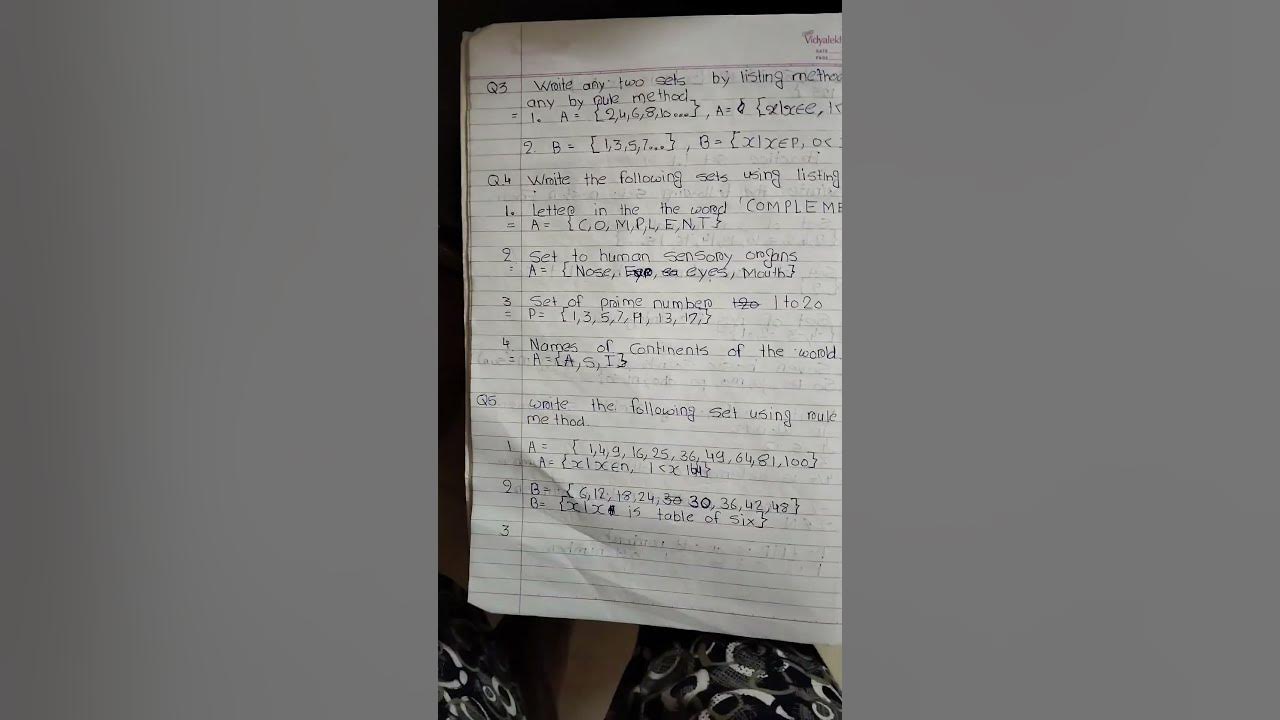 Vidyalekh
DATE
PAGE
Q3 Write any two sets by listing method
any by rule method
= 1. A = {2,4,6,8,10....}, A= {x|x∈e, 1<
2. B = {1,3,5,7...}, B = {x|x∈P, 0<
Q.4 Write the following sets using listing
1. letter in the the word 'COMPLEME
= A = {C, O, M, P, L, E, N, T}
2 Set to human sensory organs
= A = { Nose, eyes, Mouth}
3 Set of prime number 1 to 20
= P = {1,3,5,7,11, 13, 17,}
4 Names of continents of the world
= A = {A, S, I}
Q5 write the following set using rule
method
1 A = { 1,4,9, 16, 25, 36, 49, 64, 81, 100}
A = {x|x∈n, 1<x
2 B = {6,12, 18, 24, 30 30, 36, 42, 48}
B = {x|x is table of six}
3